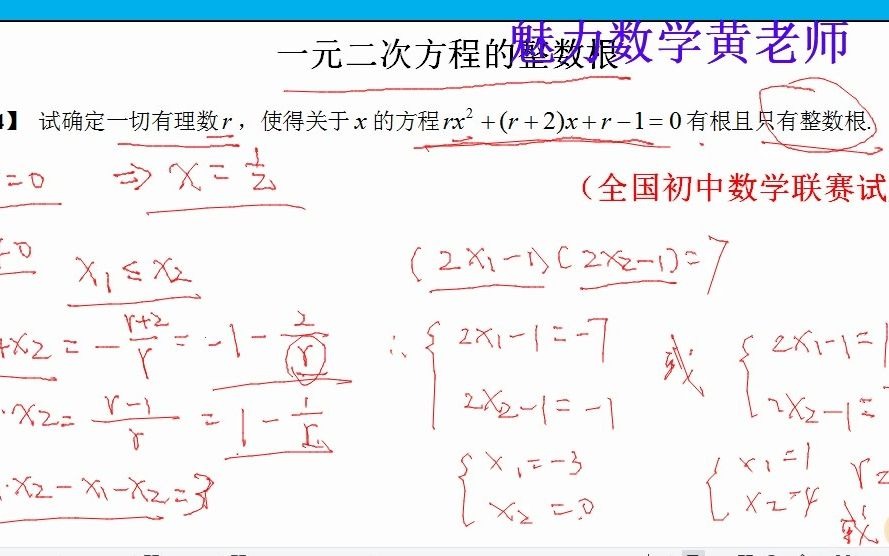 魅力数学黄老师
一元二次方程的整数根
4】 试确定一切有理数r，使得关于x的方程rx²+(r+2)x+r−1=0有根且只有整数根.
=0 ⇒ x=1/2
（全国初中数学联赛试
=0
x₁≤x₂
(2x₁−1)(2x₂−1)=7
+x₂=−(r+2)/r=−1−2/r
·x₂=(r−1)/r=1−1/r
·x₂−x₁−x₂=3
∴ { 2x₁−1=−7
2x₂−1=−1
或 { 2x₁−1=1
2x₂−1=7
{ x₁=−3
x₂=0
{ x₁=1
x₂=4
r=
或